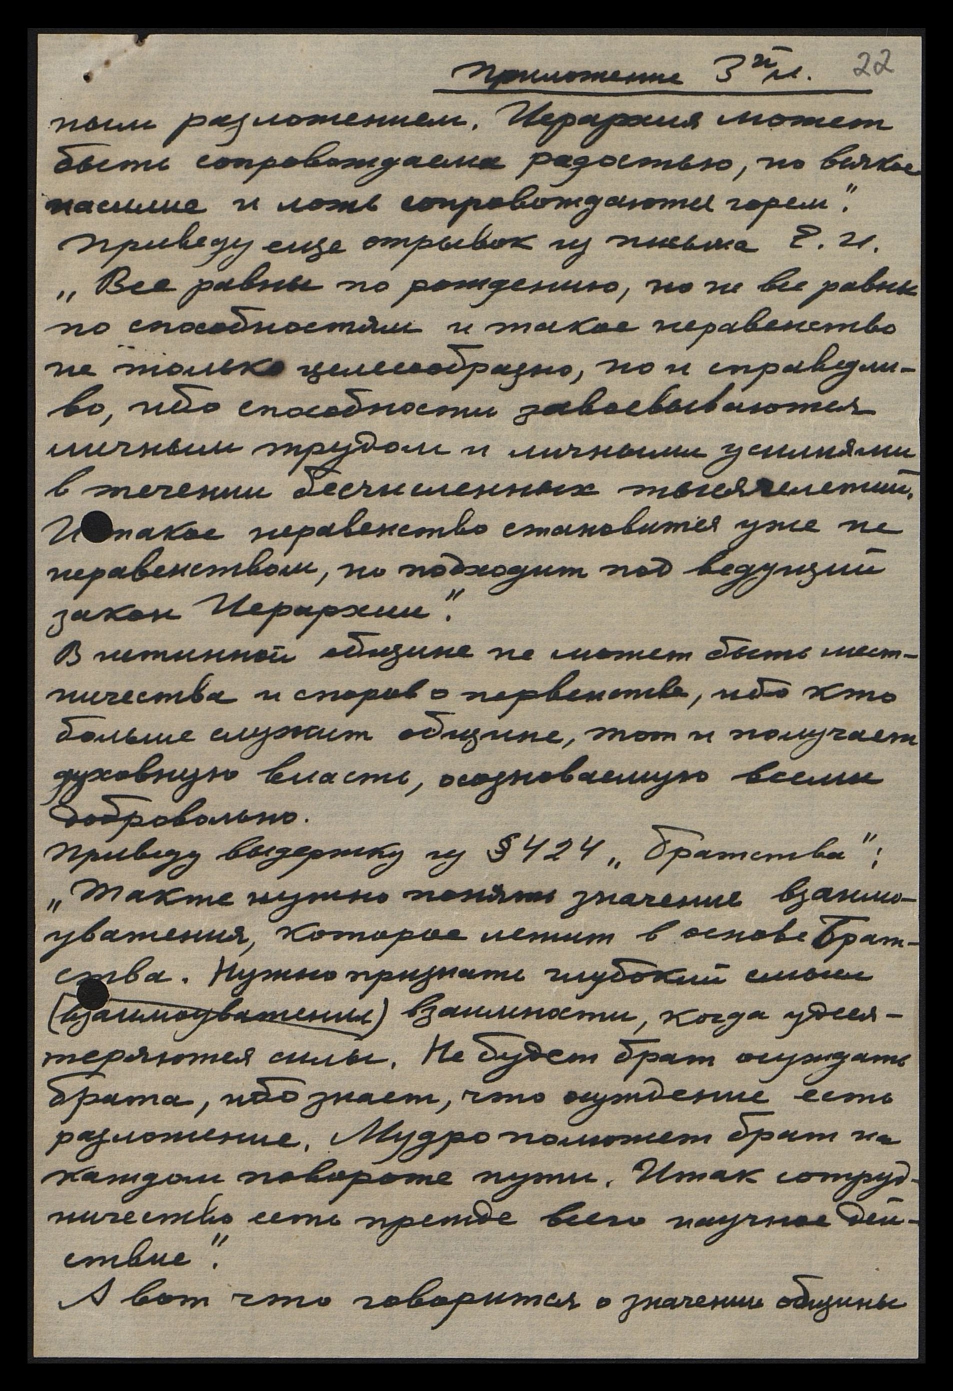 Приложение 3й л. 22
ным разложением. Иерархия может
быть сопровождаема радостью, но всякое
насилие и ложь сопровождаются горем".
Приведу еще отрывок из письма Е. И.
„Все равны по рождению, но не все равны
по способностям и такое неравенство
не только целесообразно, но и справедли-
во, ибо способности завоевываются
личным трудом и личными усилиями
в течении бесчисленных тысячелетий.
И такое неравенство становится уже не
неравенством, но подходит под ведущий
закон Иерархии".
В истинной общине не может быть мест-
ничества и споров о первенстве, ибо кто
больше служит общине, тот и получает
духовную власть, осознаваемую всеми
добровольно.
Приведу выдержку из §424 „Братства":
„Также нужно понять значение взаимо-
уважения, которое лежит в основе Брат-
ства. Нужно признать глубокий смысл
(взаимоуважения) взаимности, когда удеся-
теряются силы. Не будет брат осуждать
брата, ибо знает, что осуждение есть
разложение. Мудро поможет брат на
каждом повороте пути. Итак сотруд-
ничество есть прежде всего научное дей-
ствие".
А вот что говорится о значении общины